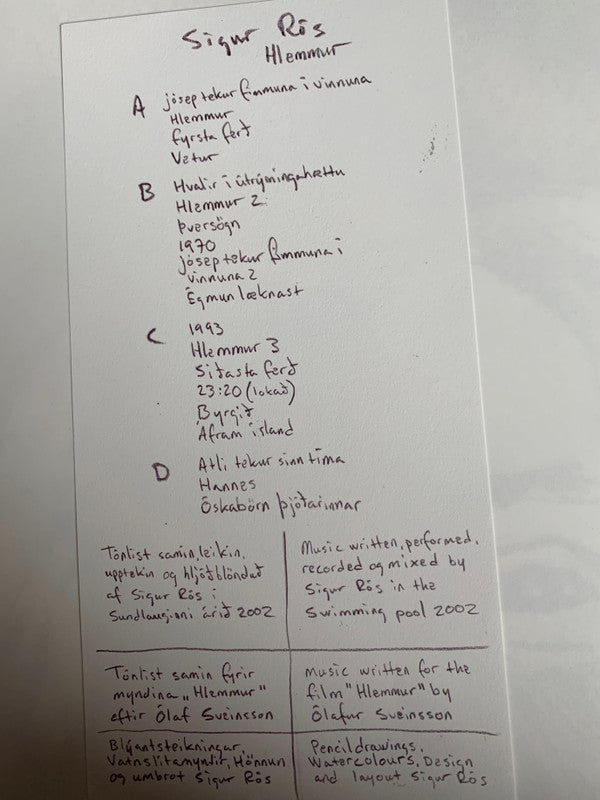 Sigur Rós
Hlemmur
A jósep tekur fimmuna í vinnuna
Hlemmur
fyrsta ferð
Vetur
B Hvalir í útrýmingahættu
Hlemmur 2
Þversögn
1970
jósep tekur fimmuna í
vinnuna 2
Ég mun læknast
C 1993
Hlemmur 3
Síðasta ferð
23:20 (lokað)
Byrgið
Áfram ísland
D Atli tekur sinn tíma
Hannes
Óskabörn þjóðarinnar
Tónlist samin, leikin,
upptekin og hljóðblönduð
af Sigur Rós í
Sundlauginni árið 2002
Music written, performed,
recorded og mixed by
Sigur Rós in the
Swimming pool 2002
Tónlist samin fyrir
myndina „Hlemmur"
eftir Ólaf Sveinsson
Music written for the
film "Hlemmur" by
Ólafur Sveinsson
Blýantsteikningar,
Vatnslitamyndir, Hönnun
og umbrot Sigur Rós
Pencildrawings,
Watercolours, Design
and layout Sigur Rós